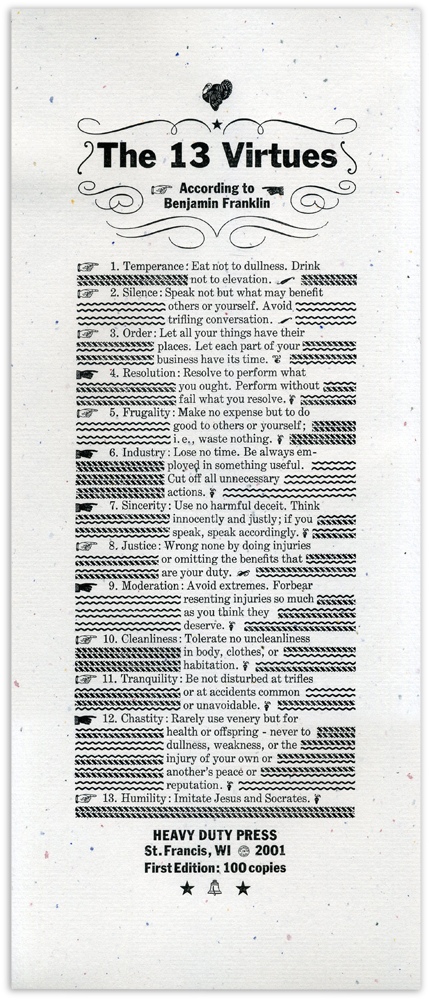 The 13 Virtues
According to
Benjamin Franklin
1. Temperance: Eat not to dullness. Drink
not to elevation.
2. Silence: Speak not but what may benefit
others or yourself. Avoid
trifling conversation.
3. Order: Let all your things have their
places. Let each part of your
business have its time.
4. Resolution: Resolve to perform what
you ought. Perform without
fail what you resolve.
5. Frugality: Make no expense but to do
good to others or yourself;
i.e., waste nothing.
6. Industry: Lose no time. Be always em-
ployed in something useful.
Cut off all unnecessary
actions.
7. Sincerity: Use no harmful deceit. Think
innocently and justly; if you
speak, speak accordingly.
8. Justice: Wrong none by doing injuries
or omitting the benefits that
are your duty.
9. Moderation: Avoid extremes. Forbear
resenting injuries so much
as you think they
deserve.
10. Cleanliness: Tolerate no uncleanliness
in body, clothes, or
habitation.
11. Tranquility: Be not disturbed at trifles
or at accidents common
or unavoidable.
12. Chastity: Rarely use venery but for
health or offspring - never to
dullness, weakness, or the
injury of your own or
another's peace or
reputation.
13. Humility: Imitate Jesus and Socrates.
HEAVY DUTY PRESS
St. Francis, WI © 2001
First Edition: 100 copies